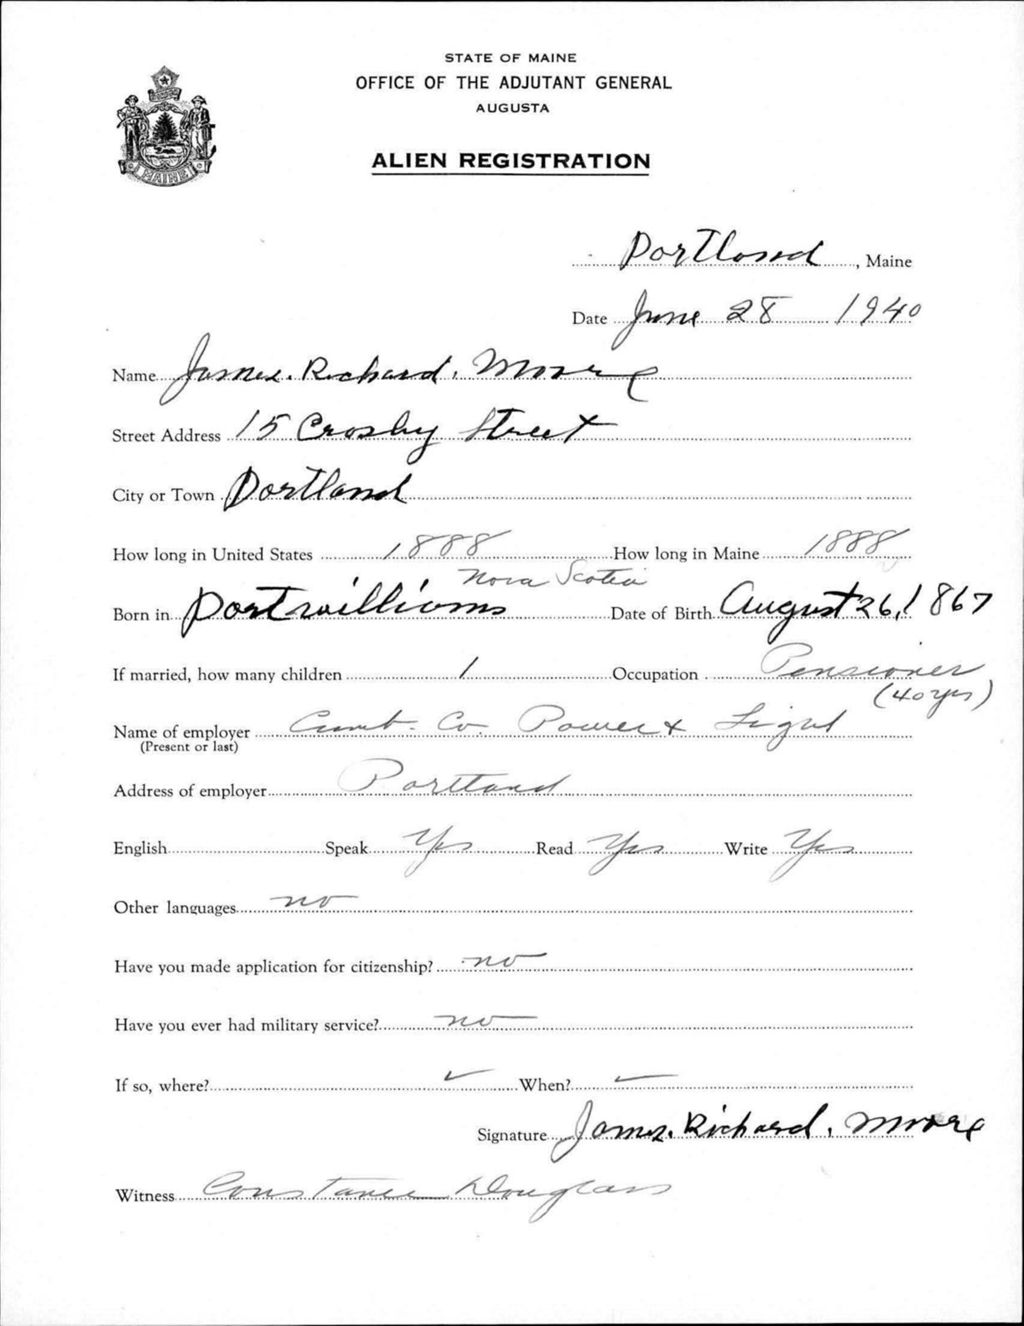 STATE OF MAINE
OFFICE OF THE ADJUTANT GENERAL
AUGUSTA
MAINE
ALIEN REGISTRATION
Portland, Maine
Date June 28 1940
Name James. Richard. Moore
Street Address 15 Crosby Street
City or Town Portland
How long in United States 1888 How long in Maine 1888
Nova Scotia
Born in Portwilliams Date of Birth August 26, 1867
If married, how many children 1 Occupation Pensioner
(40 yrs)
Name of employer Cumb. Co. Power & Light
(Present or last)
Address of employer Portland
English Speak Yes Read Yes Write Yes
Other languages no
Have you made application for citizenship? no
Have you ever had military service? no
If so, where? ✓ When? ✓
Signature James. Richard. Moore
Witness Constance Douglass